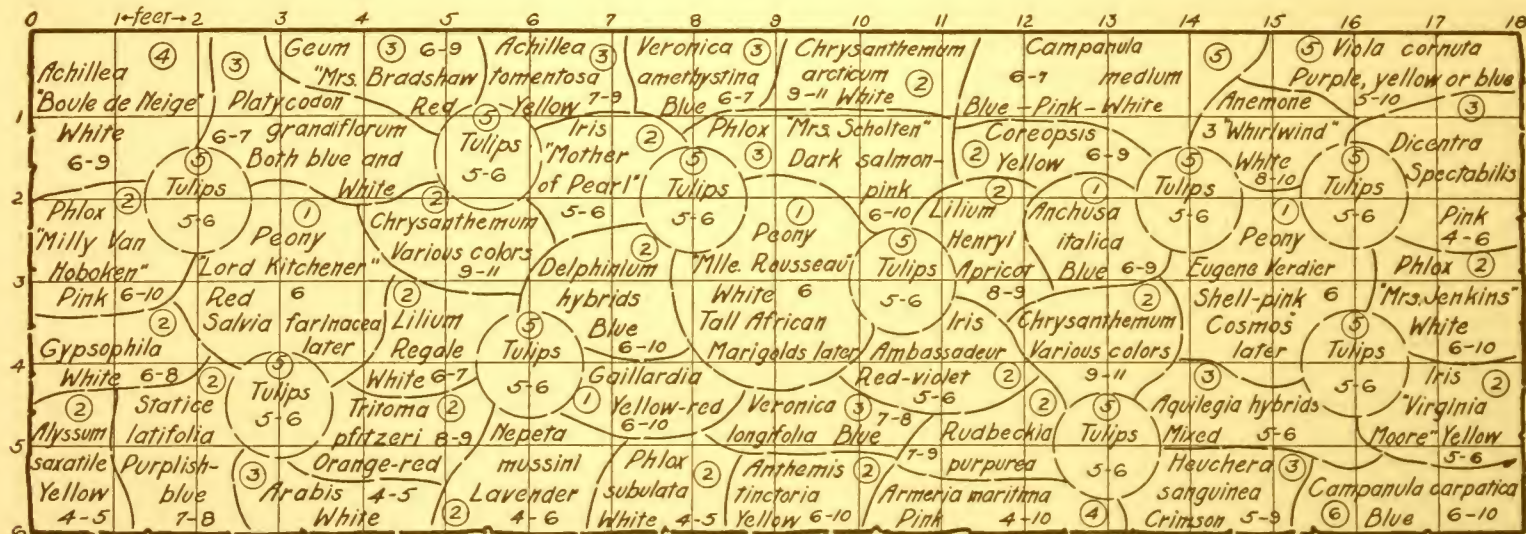 0 1 ←feet→ 2 3 4 5 6 7 8 9 10 11 12 13 14 15 16 17 18
1
2
3
4
5
6
④
Achillea
"Boule de Neige"
White
6-9
③
Platycodon
6-7 grandiflorum
Both blue and
White
Geum ③ 6-9
"Mrs. Bradshaw"
Red
Achillea ③
tomentosa
Yellow 7-9
Veronica ③
amethystina
Blue 6-7
Chrysanthemum
arcticum ②
9-11 White
Campanula
6-7 medium
Blue-Pink-White
⑤
⑤ Viola cornuta
Purple, yellow or blue
5-10
Anemone
3 "Whirlwind"
White
8-10
③
Dicentra
Spectabilis
Pink
4-6
⑤
Tulips
5-6
⑤
Tulips
5-6
Iris ②
"Mother
of Pearl"
5-6
⑤
Tulips
5-6
Phlox "Mrs. Scholten"
③ Dark salmon-
pink
6-10
Coreopsis
② Yellow 6-9
⑤
Tulips
5-6
⑤
Tulips
5-6
Phlox ②
"Milly Van
Hoboken"
Pink 6-10
①
Peony
"Lord Kitchener"
Red 6
Salvia farinacea
later
②
Chrysanthemum
Various colors
9-11
②
Delphinium
hybrids
Blue
6-10
①
Peony
"Mlle. Rousseau"
White 6
Tall African
Marigolds later
⑤
Tulips
5-6
②
Lilium
Henryi
Apricot
8-9
①
Anchusa
italica
Blue 6-9
①
Peony
Eugene Verdier
Shell-pink 6
Cosmos
later
Phlox ②
"Mrs. Jenkins"
White
6-10
②
Gypsophila
White 6-8
②
Lilium
Regale
White 6-7
⑤
Tulips
5-6
Iris
Ambassadeur
Red-violet ②
5-6
②
Chrysanthemum
Various colors
9-11
⑤
Tulips
5-6
②
Alyssum
saxatile
Yellow
4-5
②
Statice
latifolia
Purplish-
blue
7-8
⑤
Tulips
5-6
Tritoma ②
pfitzeri 8-9
Orange-red
Gaillardia
① Yellow-red
6-10
Veronica ③ 7-8
longifolia Blue
②
Rudbeckia
7-9 purpurea
⑤
Tulips
5-6
③
Aquilegia hybrids
Mixed 5-6
Iris ②
"Virginia
Moore" Yellow
5-6
③
Arabis 4-5
White
Nepeta
mussini
Lavender
② 4-6
Phlox ②
subulata
White 4-5
Anthemis ②
tinctoria
Yellow 6-10
Armeria maritima
Pink 4-10 ④
Heuchera ③
sanguinea
Crimson 5-9
Campanula carpatica
⑥ Blue 6-10